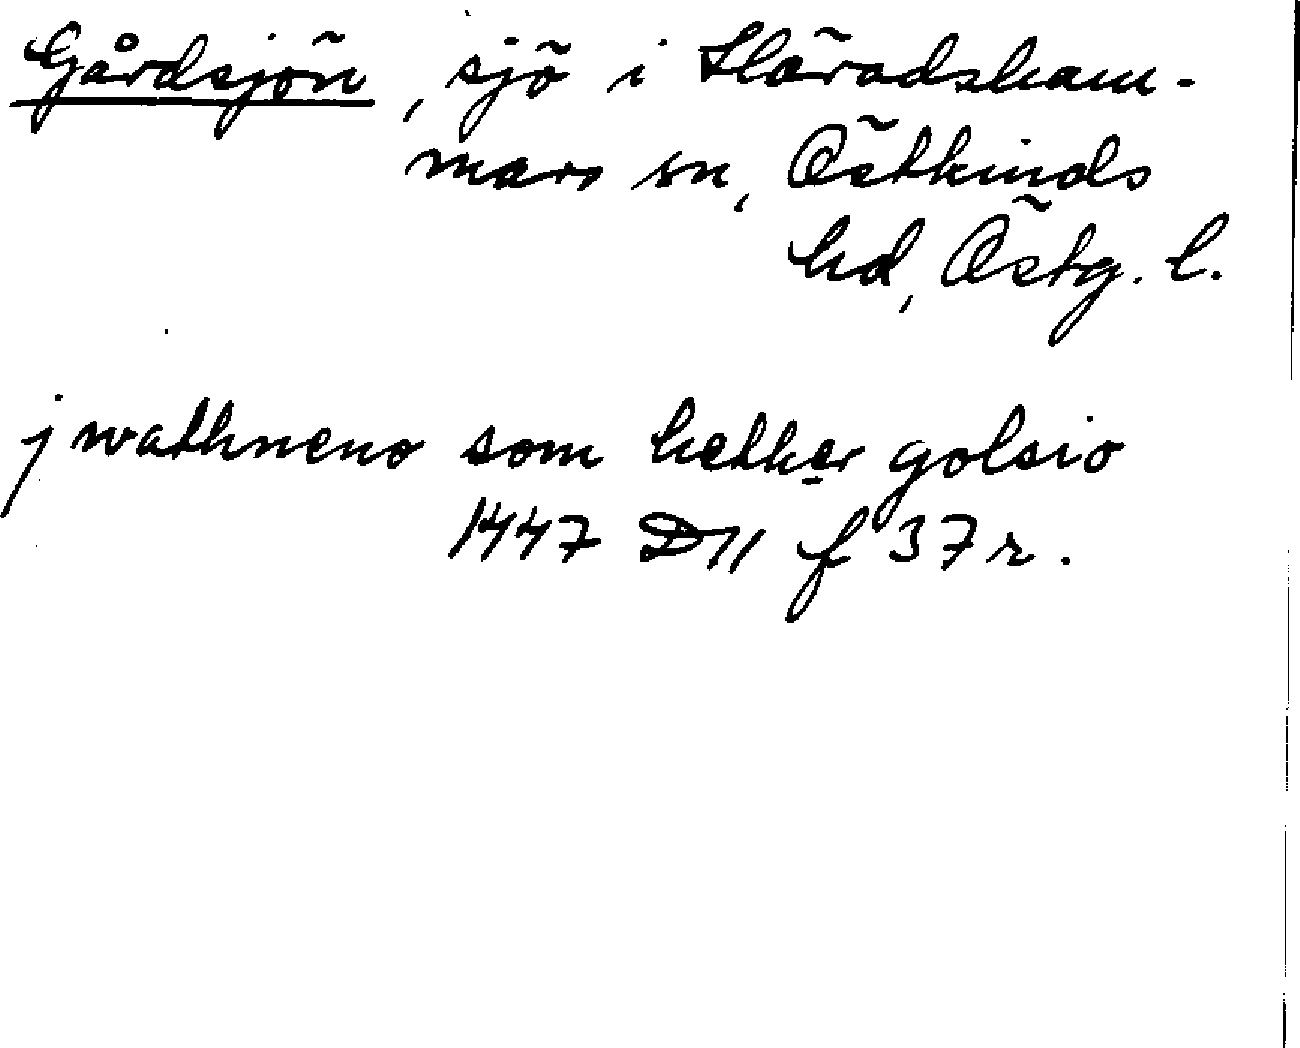 Gårdsjön, sjö i Häradsham-
mars sn, Östkinds
hd, Östg. l.
j wathneno som hether golsio
1447 D11 f 37 r.